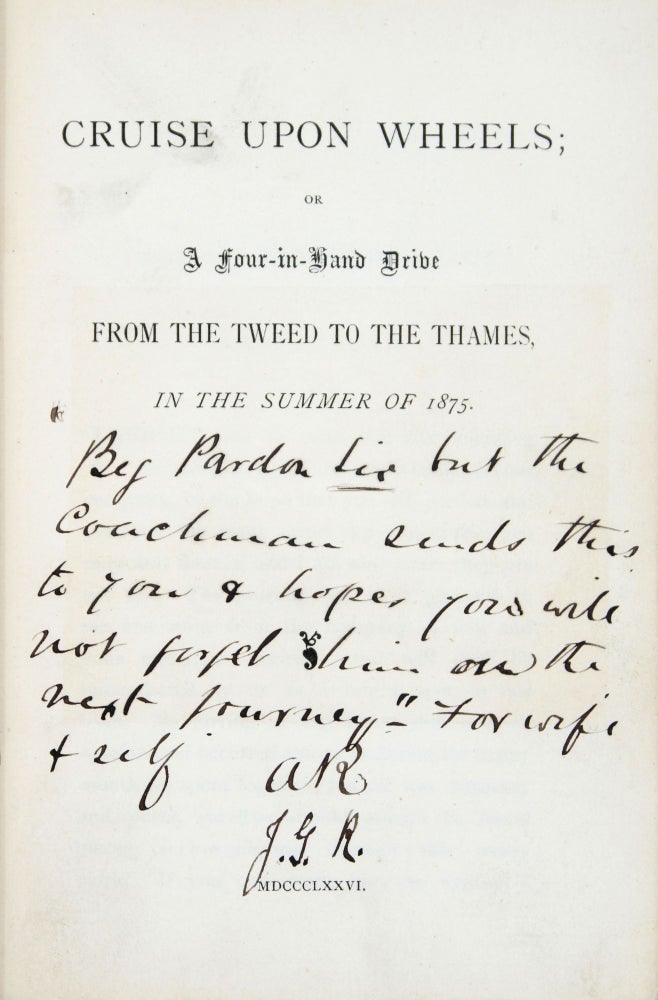 CRUISE UPON WHEELS;
OR
A Four-in-Hand Drive
FROM THE TWEED TO THE THAMES,
IN THE SUMMER OF 1875.
Beg Pardon Sir but the
Coachman sends this
to you & hopes you will
not forget him on the
next journey" For wife
& self AR
J.G.R.
MDCCCLXXVI.